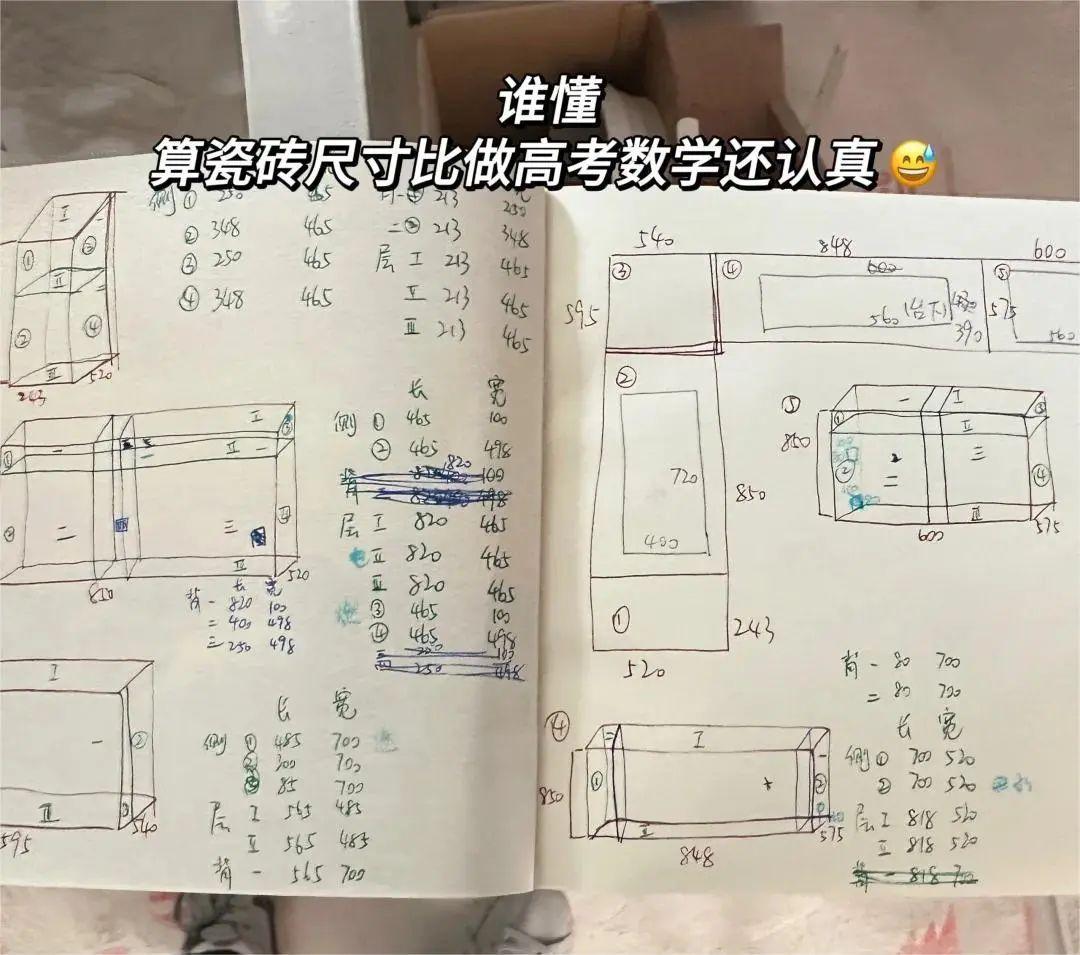 谁懂
算瓷砖尺寸比做高考数学还认真😅
I
一
① ②
II
② ④
III
243 520
侧 ① 250 465
② 348 465
③ 250 465
④ 348 465
一 213 250
二 213 348
层 I 213 465
II 213 465
III 213 465
I
① 一 II 一 ③
二 三 ④
III
520
背 长 宽
一 820 100
二 400 498
三 250 498
长 宽
侧 ① 465 100
② 465 498
层 I 820 465
II 820 465
III 820 465
③ 465 100
④ 465 498
250 498
I
一 ②
II
595 540
长 宽
侧 ① 485 700
② 300 700
③ 85 700
层 I 565 485
II 565 485
背 一 565 700
540 848 600
③ ④ 600 ⑤
595 560 (台下) 390 575 560
②
720
400
850
①
243
520
⑤
一 I
① II ③
850 ② 二 三 ④
III
600 575
背 一 80 700
二 80 700
长 宽
侧 ① 700 520
② 700 520
层 I 818 520
II 818 520
背 一 818 700
④
二 I 一
850 ① ②
II
848 575